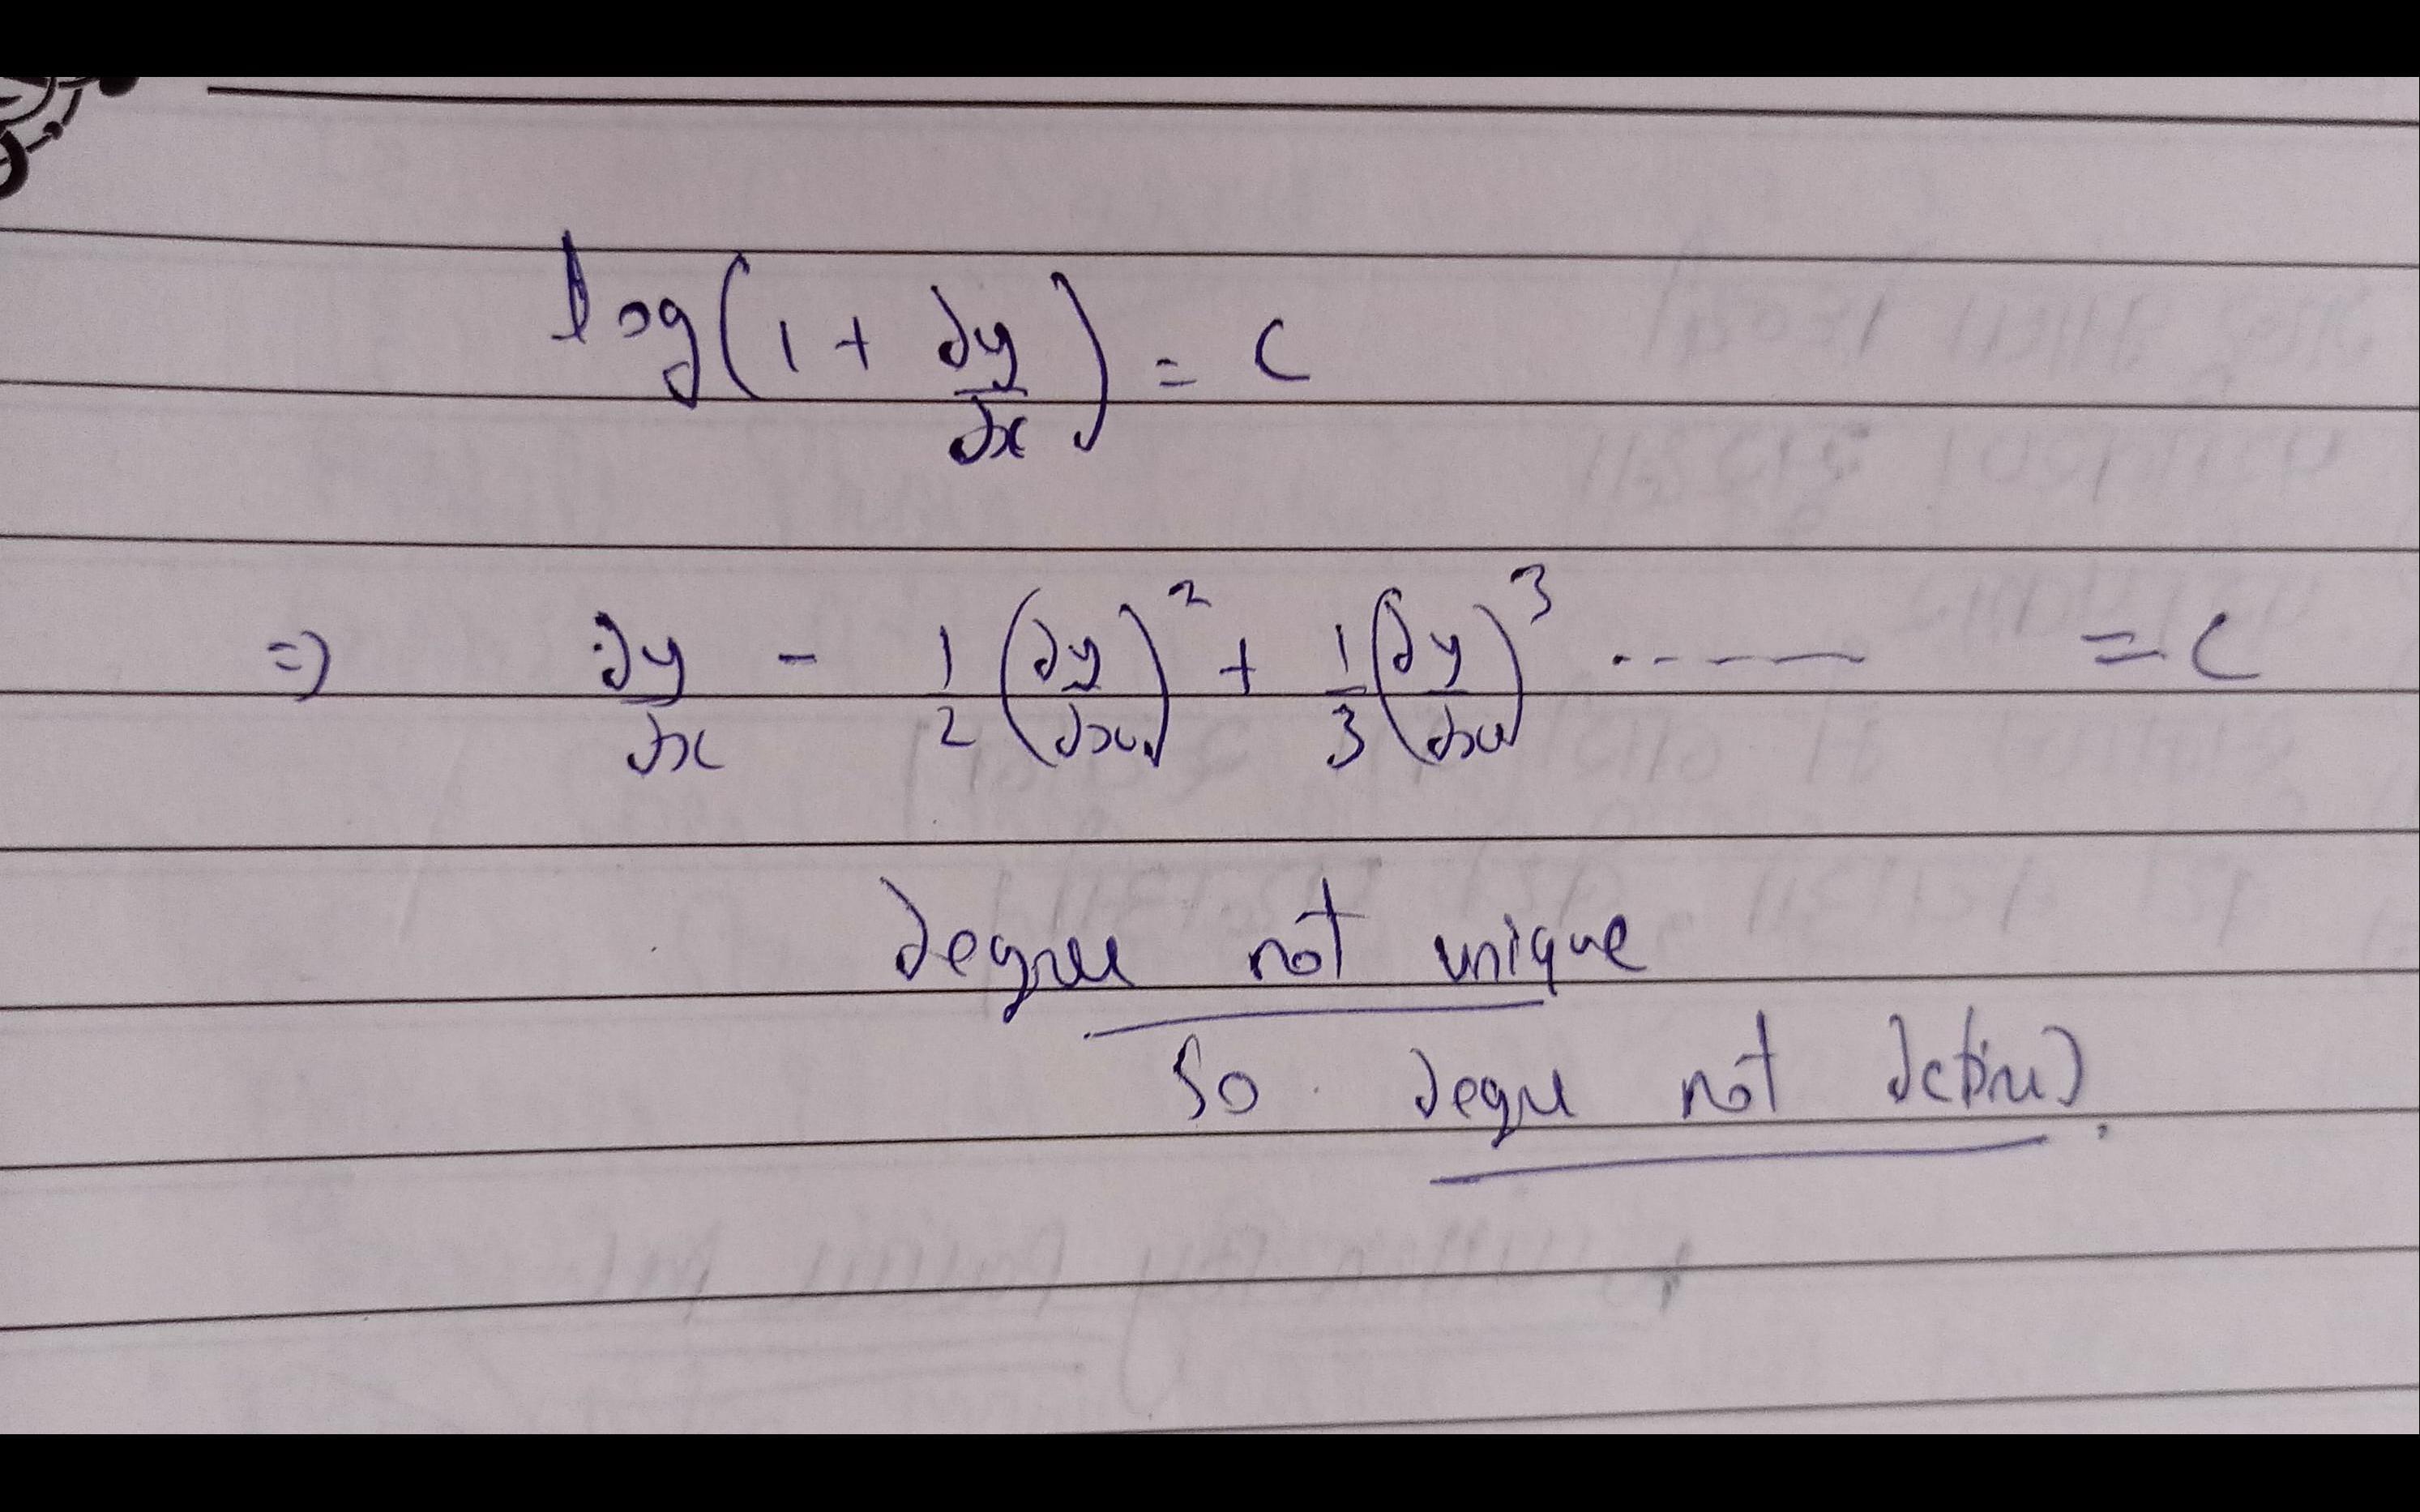 log(1 + dy/dx) = c
=> dy/dx - 1/2 (dy/dx)^2 + 1/3 (dy/dx)^3 ------- = c
degree not unique
So degre not defined.